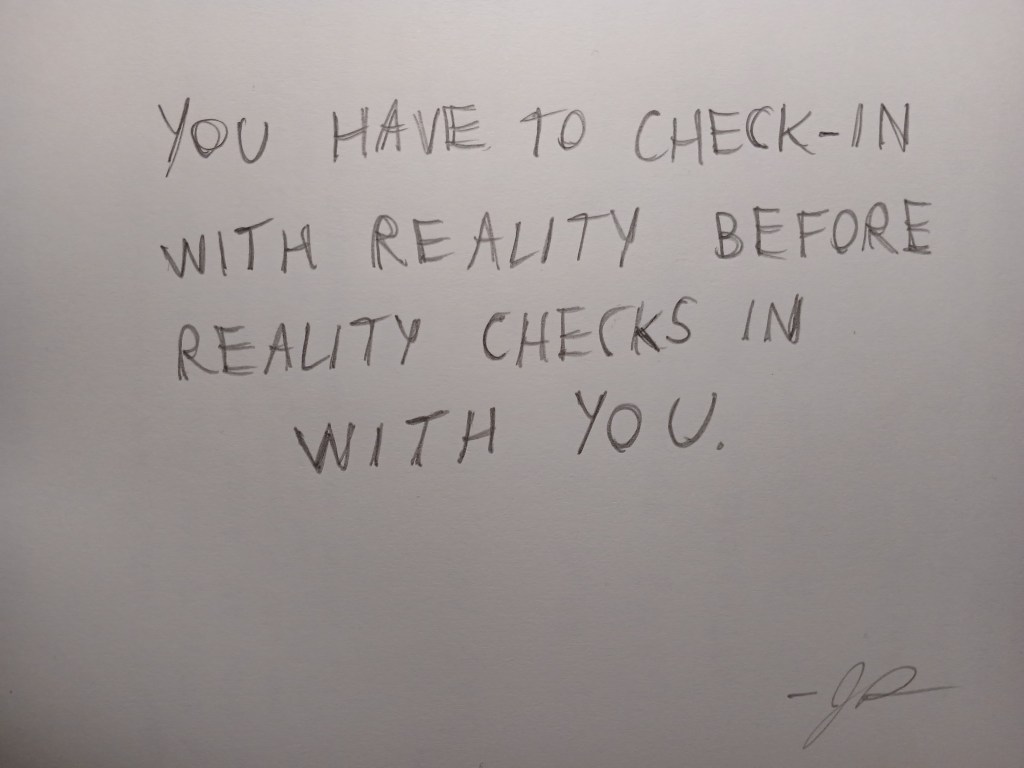 YOU HAVE TO CHECK-IN
WITH REALITY BEFORE
REALITY CHECKS IN
WITH YOU.